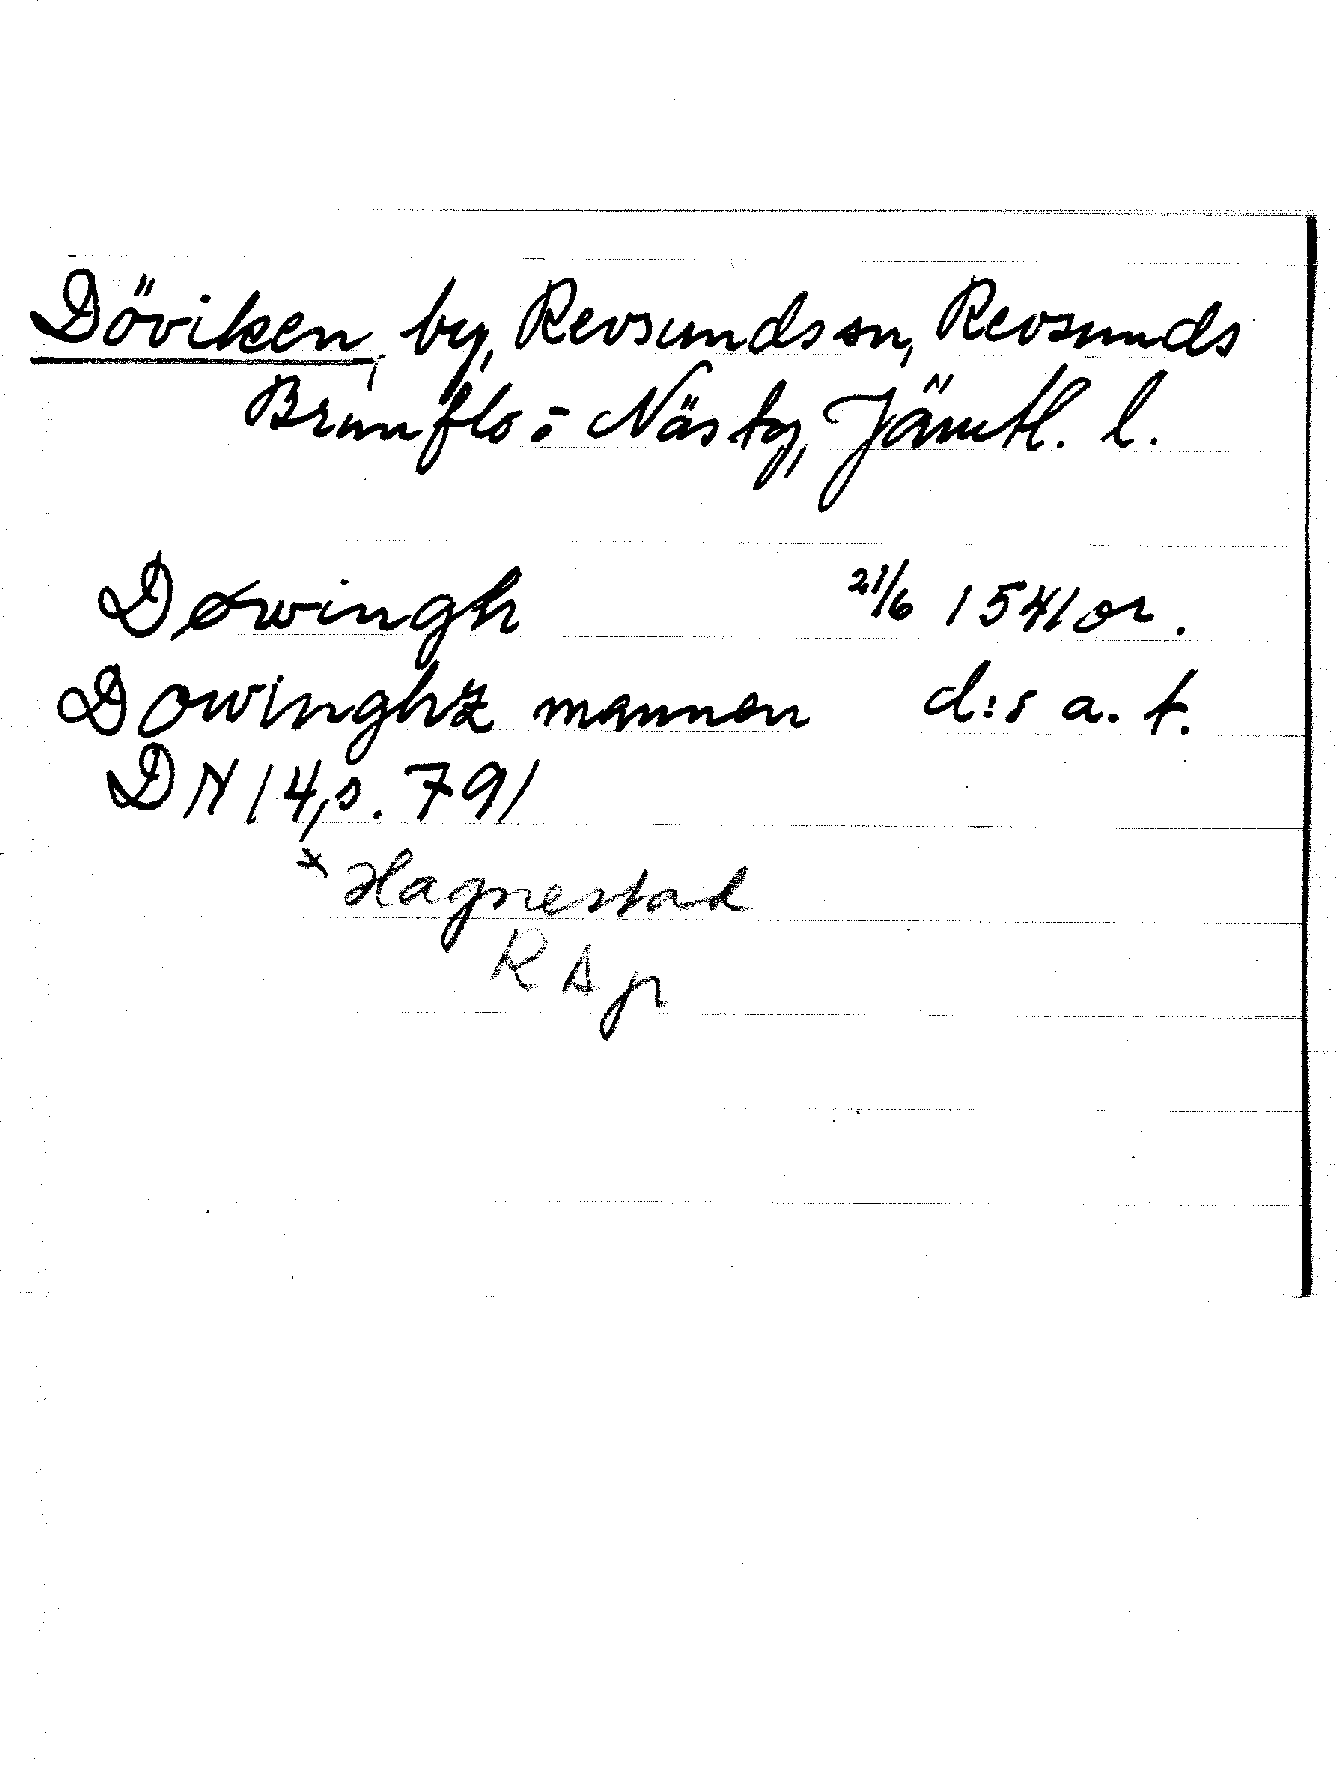 Döviken, by, Revsunds sn, Revsunds
Brunflo o Näs tg, Jämtl. l.
Døwingh 21/6 1541 or.
Dowinghz mannen d:s a. t.
DN 14, s. 791
* Hagnestad
RA pr